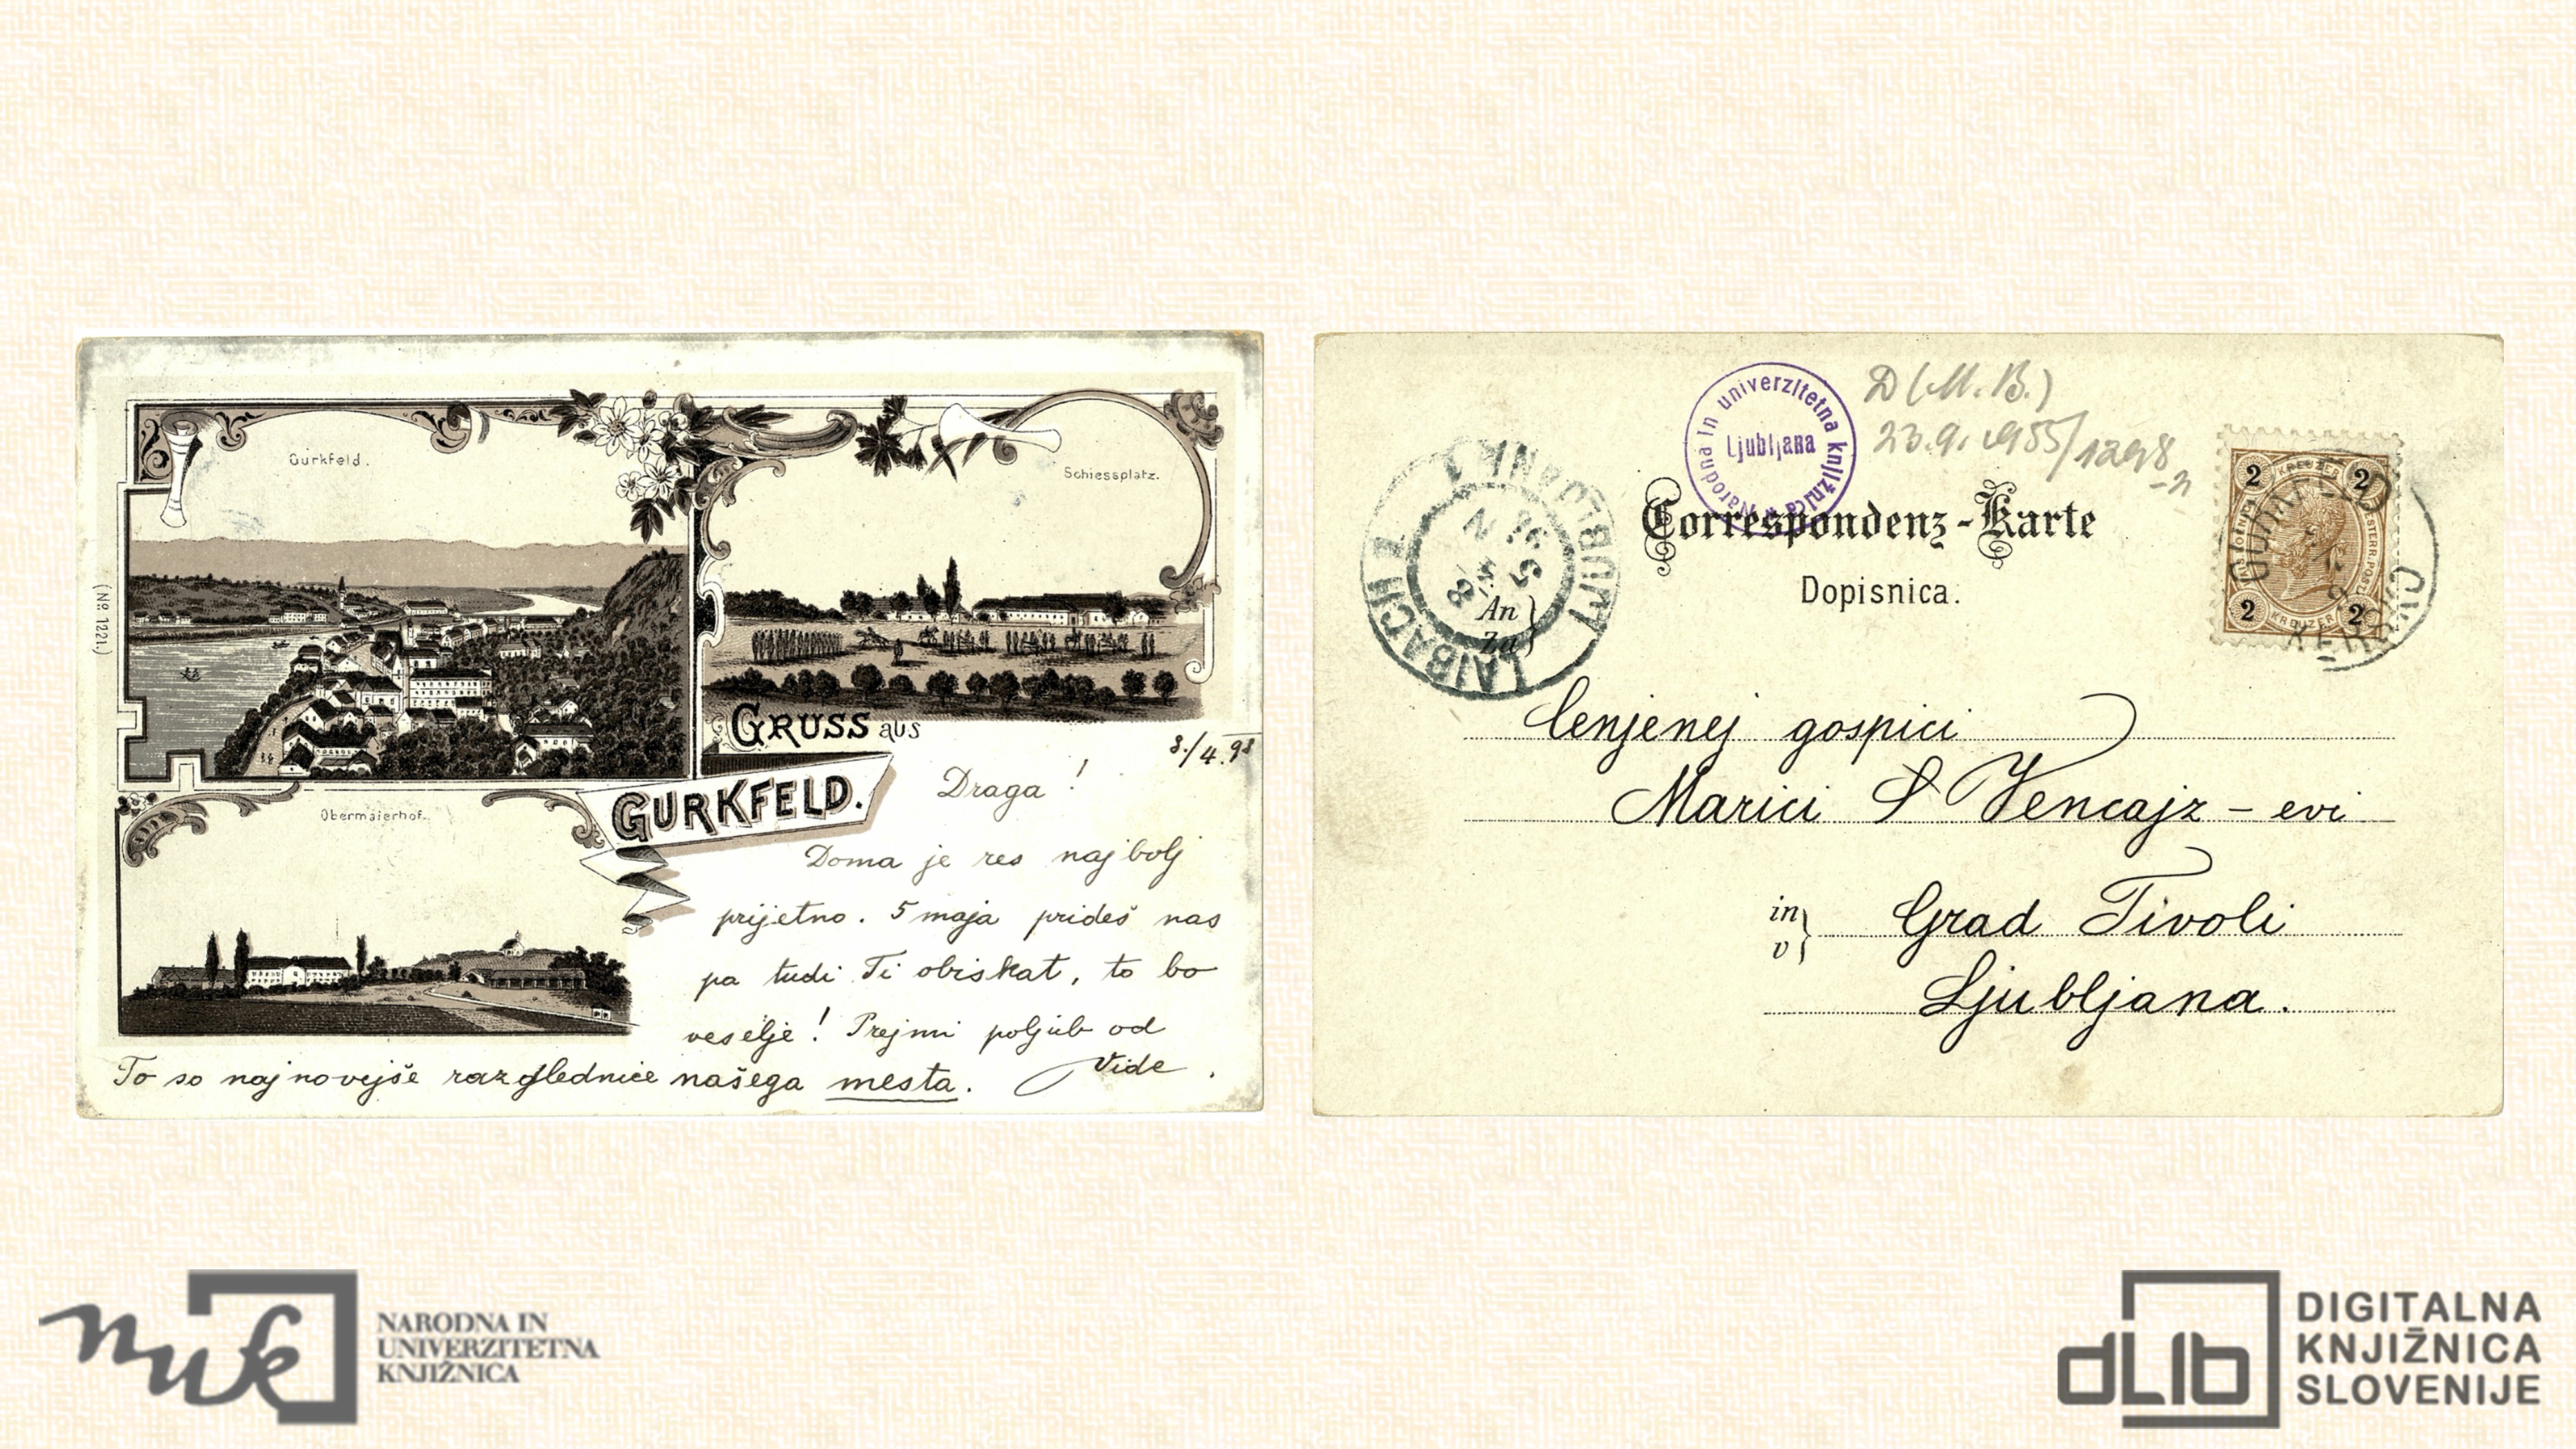 Gurkfeld.
Schiessplatz.
(No. 1221.)
GRUSS aus
GURKFELD.
Obermaierhof.
3./4.98
Draga!
Doma je res najbolj
prijetno. 5 maja prideš nas
pa tudi Ti obiskat, to bo
veselje! Prejmi poljub od
Vide.
To so najnovejše razglednice našega mesta.
Narodna in univerzitetna knjižnica
Ljubljana
D (M. B.)
23.9.1955/1298
LAIBACH 1
LJUBLJANA 1
Correspondenz-Karte
Dopisnica.
An
Za
2 KREUZER 2
2 KREUZER 2
GURKFELD
KRŠKO
Cenjenej gospici
Marici S Vencajz-evi
in
v
Grad Tivoli
Ljubljana.
nuk
NARODNA IN
UNIVERZITETNA
KNJIŽNICA
dLib
DIGITALNA
KNJIŽNICA
SLOVENIJE